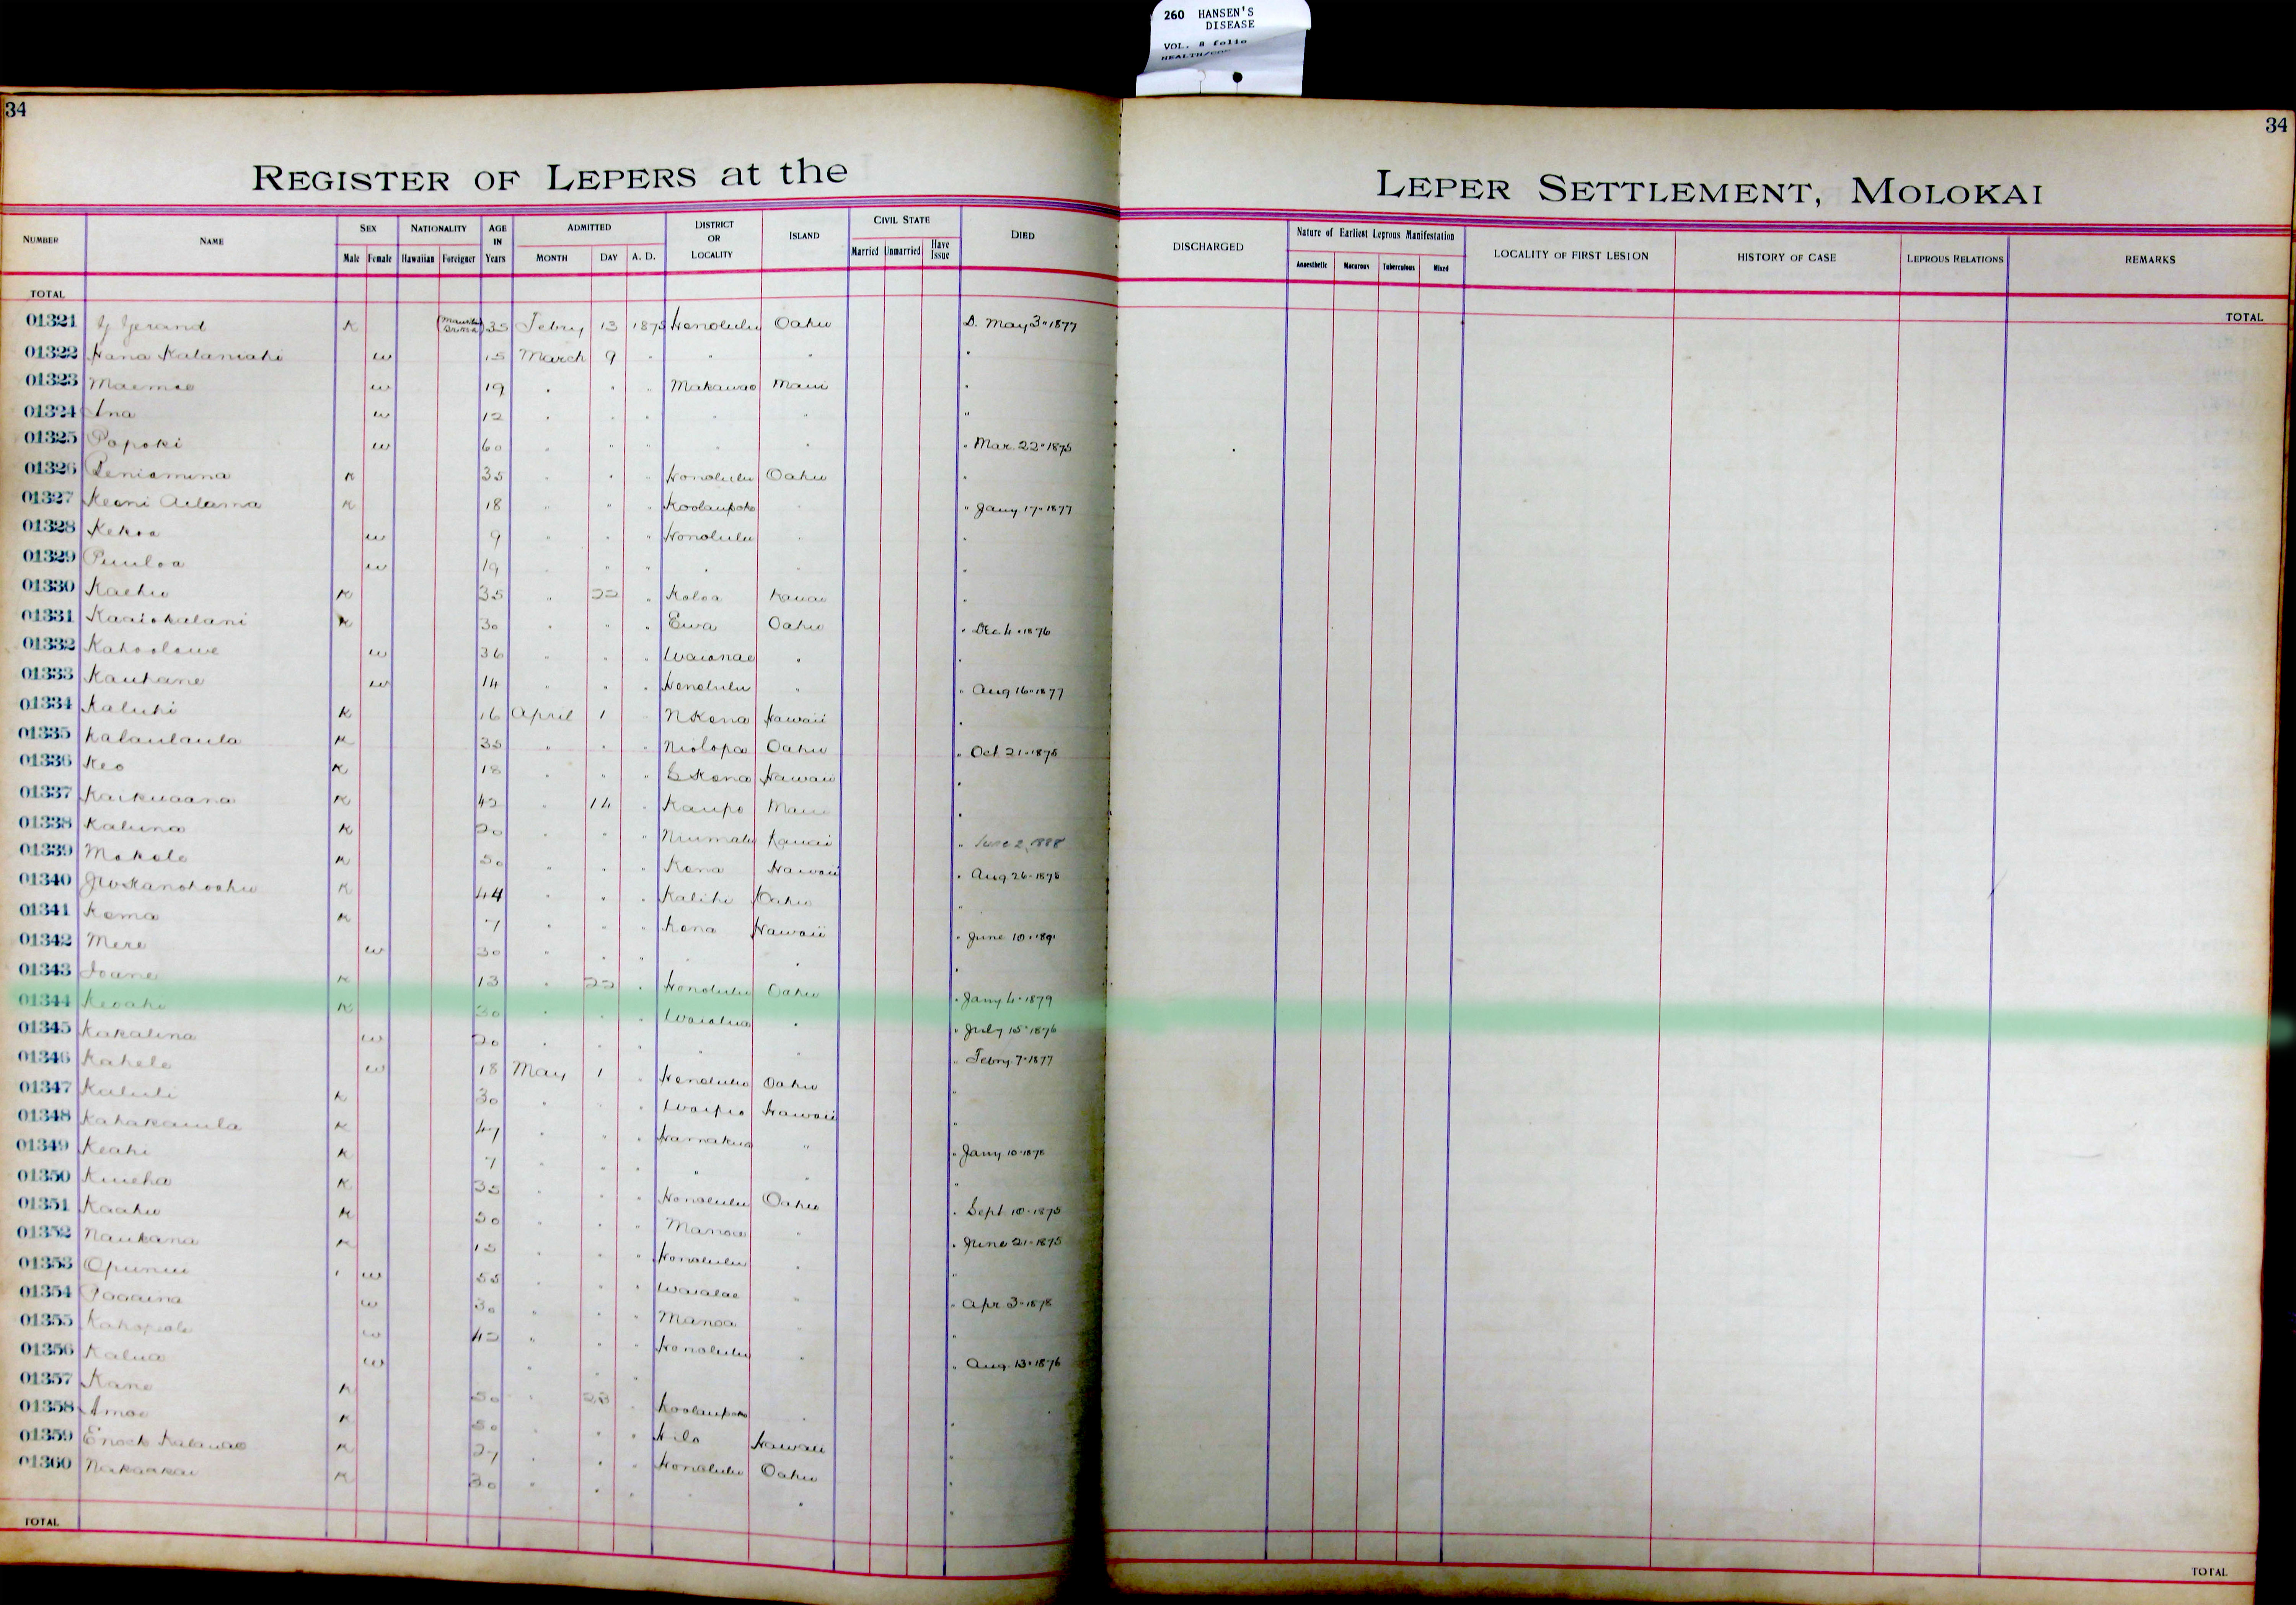 260 HANSEN'S
DISEASE
VOL. 8 folio
34
34
REGISTER OF LEPERS at the
LEPER SETTLEMENT, MOLOKAI
NUMBER NAME SEX Male Female NATIONALITY Hawaiian Foreigner AGE IN Years ADMITTED MONTH DAY A. D. DISTRICT OR LOCALITY ISLAND CIVIL STATE Married Unmarried Have Issue DIED
DISCHARGED Nature of Earliest Leprous Manifestation Anaesthetic Macurous Tuberculous Mixed LOCALITY OF FIRST LESION HISTORY OF CASE LEPROUS RELATIONS REMARKS
TOTAL
TOTAL
01321 K 35 Febry 13 1875 Honolulu Oahu D. May 3 · 1877
01322 Hana Kalaniahi w 15 March 9 " " " "
01323 Maemae w 19 " " " Makawao Maui "
01324 Ina w 12 " " " " " "
01325 Popoki w 60 " " " " " " Mar. 22 · 1875
01326 Beniamina K 35 " " " Honolulu Oahu "
01327 Keoni Ailama K 18 " " " Koolaupoko " " Jany 17 · 1877
01328 Kekoa w 9 " " " Honolulu " "
01329 Puuloa w 19 " " " " " "
01330 Kaehu K 35 " 22 " Koloa Kauai "
01331 Kaaiokalani K 30 " " " Ewa Oahu " Dec 4 · 1876
01332 Kahoolawe w 36 " " " Waianae " "
01333 Kauhane w 14 " " " Honolulu " " Aug 16 · 1877
01334 Kaluhi K 16 April 1 " N Kona Hawaii "
01335 Kalaulaula K 35 " " " Niolopa Oahu " Oct 21 · 1875
01336 Keo K 18 " " " S Kona Hawaii "
01337 Kaikuaana K 42 " 14 " Kaupo Maui "
01338 Kaluna K 20 " " " Niumalu Kauai " June 2, 1888
01339 Makole K 50 " " " Kona Hawaii " Aug 26 · 1878
01340 K 44 " " " Kalihi Oahu "
01341 Kema K 7 " " " Kona Hawaii " June 10 · 1891
01342 Mere w 30 " " " " " "
01343 Ioane K 13 " 22 " Honolulu Oahu " Jany 4 · 1879
01344 Keoahi K 30 " " " Waialua " " July 15 · 1876
01345 Kakalina w 20 " " " " " " Febry. 7 · 1877
01346 Kahele w 18 May 1 " Honolulu Oahu "
01347 Kaluli K 30 " " " Waipio Hawaii "
01348 Kahakauila K 47 " " " Hamakua " " Jany 10 · 1878
01349 Keahi K 7 " " " " " "
01350 Kuueha K 35 " " " Honolulu Oahu " Sept 10 · 1875
01351 Kaahu K 50 " " " Manoa " " June 21 · 1875
01352 Naukana K 15 " " " Honolulu " "
01353 Opunui w 55 " " " Waialae " " Apr 3 · 1878
01354 w 30 " " " Manoa " "
01355 w 42 " " " Honolulu " " Aug. 13 · 1876
01356 Kalua w " " "
01357 Kane K 50 " 28 " Koolaupoko " "
01358 Amoe K 50 " " " Hilo Hawaii "
01359 Enoch Kalauao K 27 " " " Honolulu Oahu "
01360 Nakaakai K 30 " " " " " "
TOTAL
TOTAL